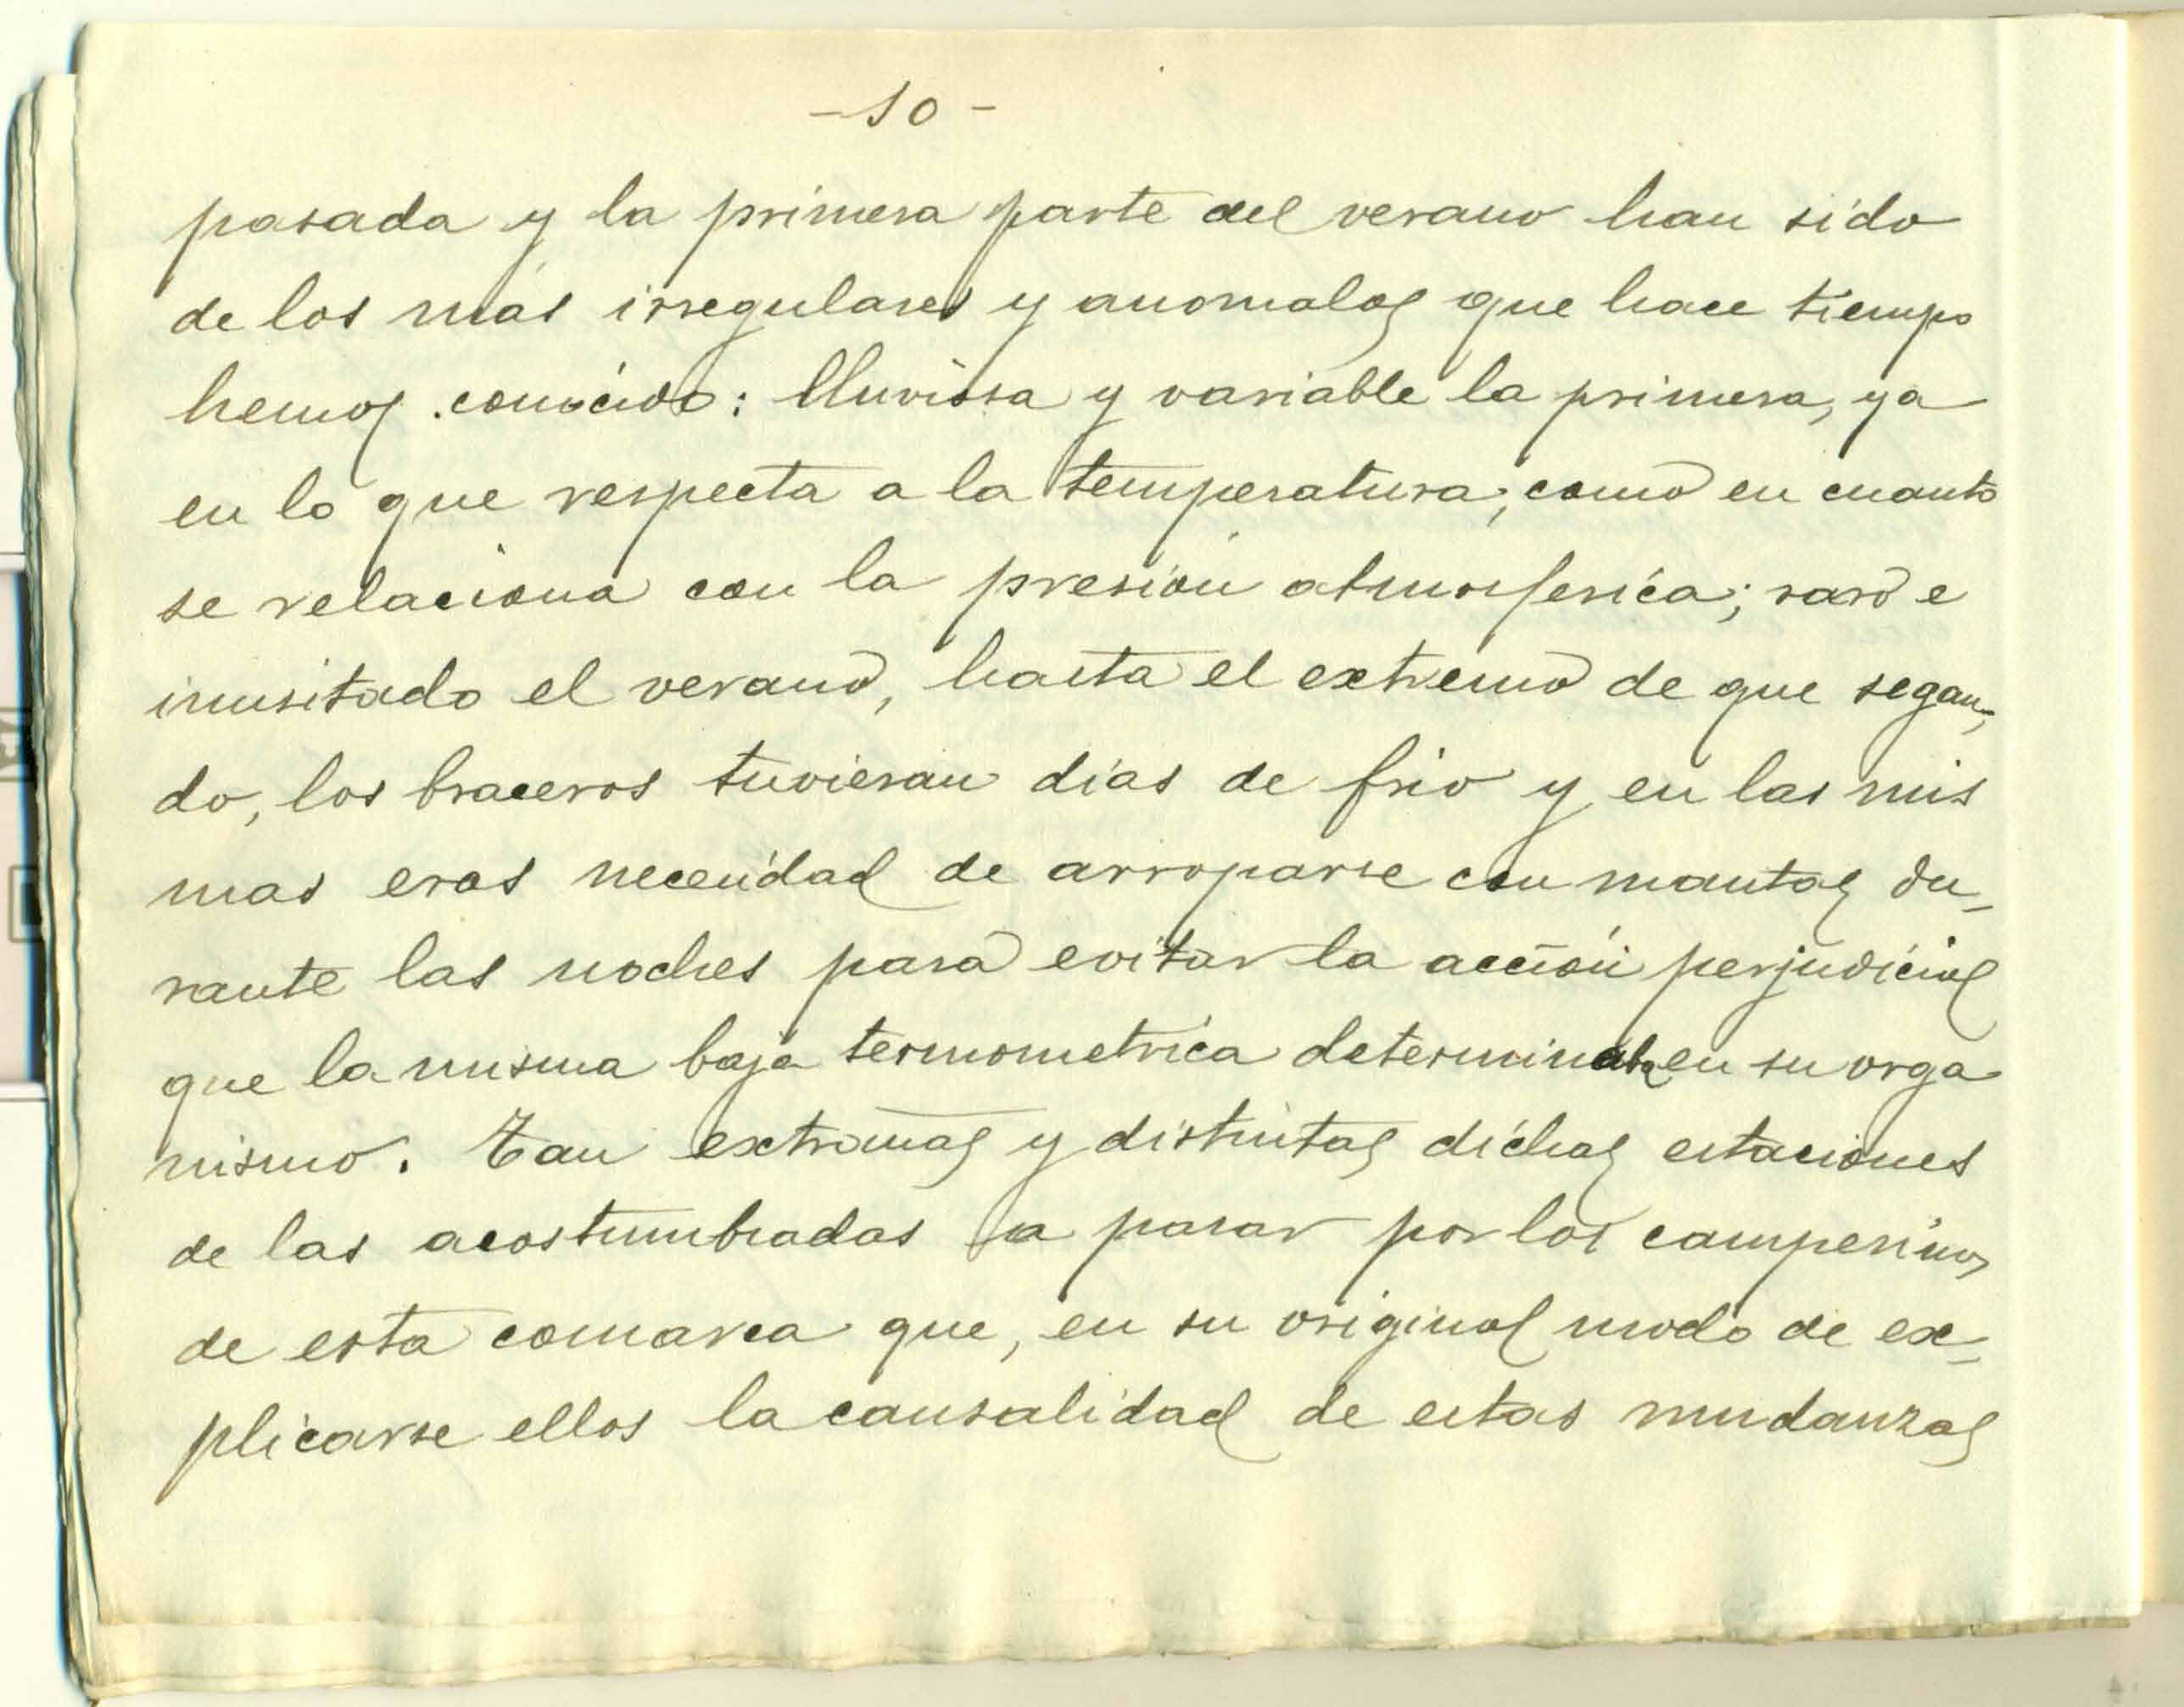 -10-
pasada y la primera parte del verano han sido
de los más irregulares y anomalos que hace tiempo
hemos conocido: lluviosa y variable la primera, ya
en lo que respecta a la temperatura, como en cuanto
se relaciona con la presión atmosferica; raro e
inusitado el verano, hasta el extremo de que segan-
do, los braceros tuvieran días de frio y en las mis
mas eras necesidad de arroparse con mantas du-
rante las noches para evitar la acción perjudicial
que la misma baja termometrica determinaba en su orga
nismo. Tan extremas y distintas dichas estaciones
de las acostumbradas a pasar por los campesinos
de esta comarca que, en su original modo de ex-
plicarse ellos la causalidad de estas mudanzas